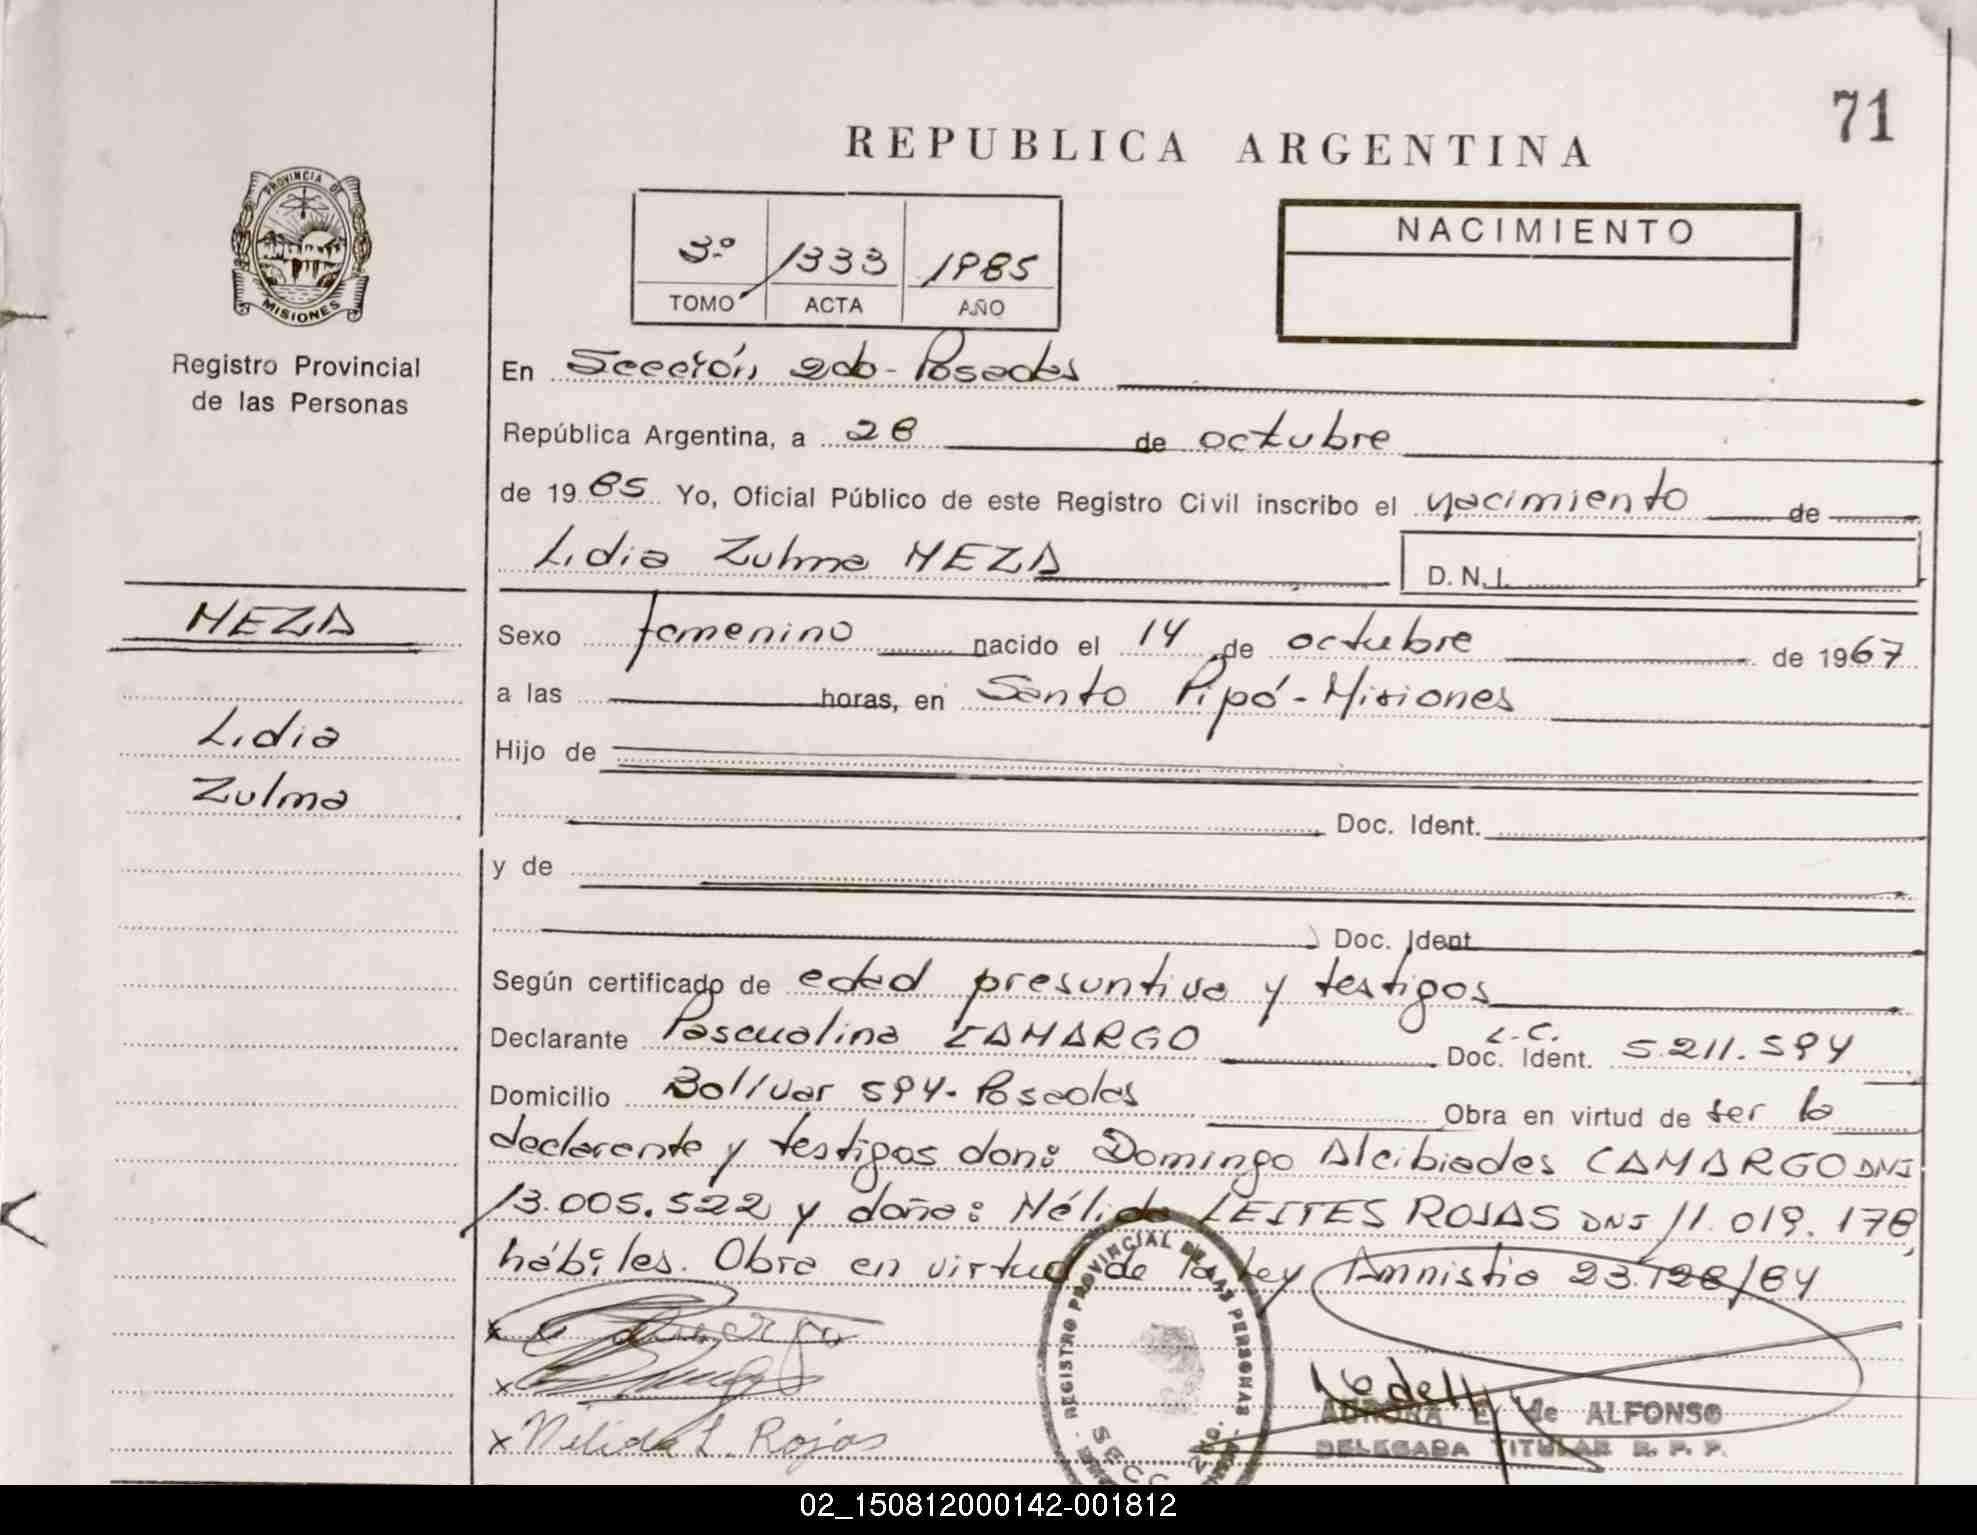 71
REPUBLICA ARGENTINA
PROVINCIA DE
MISIONES
Registro Provincial
de las Personas
3º 1333 1985
TOMO ACTA AÑO
NACIMIENTO
En Sección 2da - Posadas
República Argentina, a 28 de octubre
de 1985 Yo, Oficial Público de este Registro Civil inscribo el nacimiento de
Lidia Zulma MEZA D.N.I.
MEZA
Lidia
Zulma
Sexo femenino nacido el 14 de octubre de 1967
a las horas, en Santo Pipó - Misiones
Hijo de
Doc. Ident.
y de
Doc. Ident.
Según certificado de edad presuntiva y testigos
Declarante Pascualina CAMARGO L.C. Doc. Ident. 5.211.594
Domicilio Bolívar 594 - Posadas Obra en virtud de ser la
declarante y testigos don: Domingo Alcibiades CAMARGO DNI
13.005.522 y doña: Nélida LEITES ROJAS DNI 11.019.178,
hábiles. Obra en virtud de la ley Amnistia 23.128/84
x
x
x Nelida L. Rojas
REGISTRO PROVINCIAL DE LAS PERSONAS
SECC. 2DA.
AURORA E. de ALFONSO
DELEGADA TITULAR R. P. P.
02_150812000142-001812